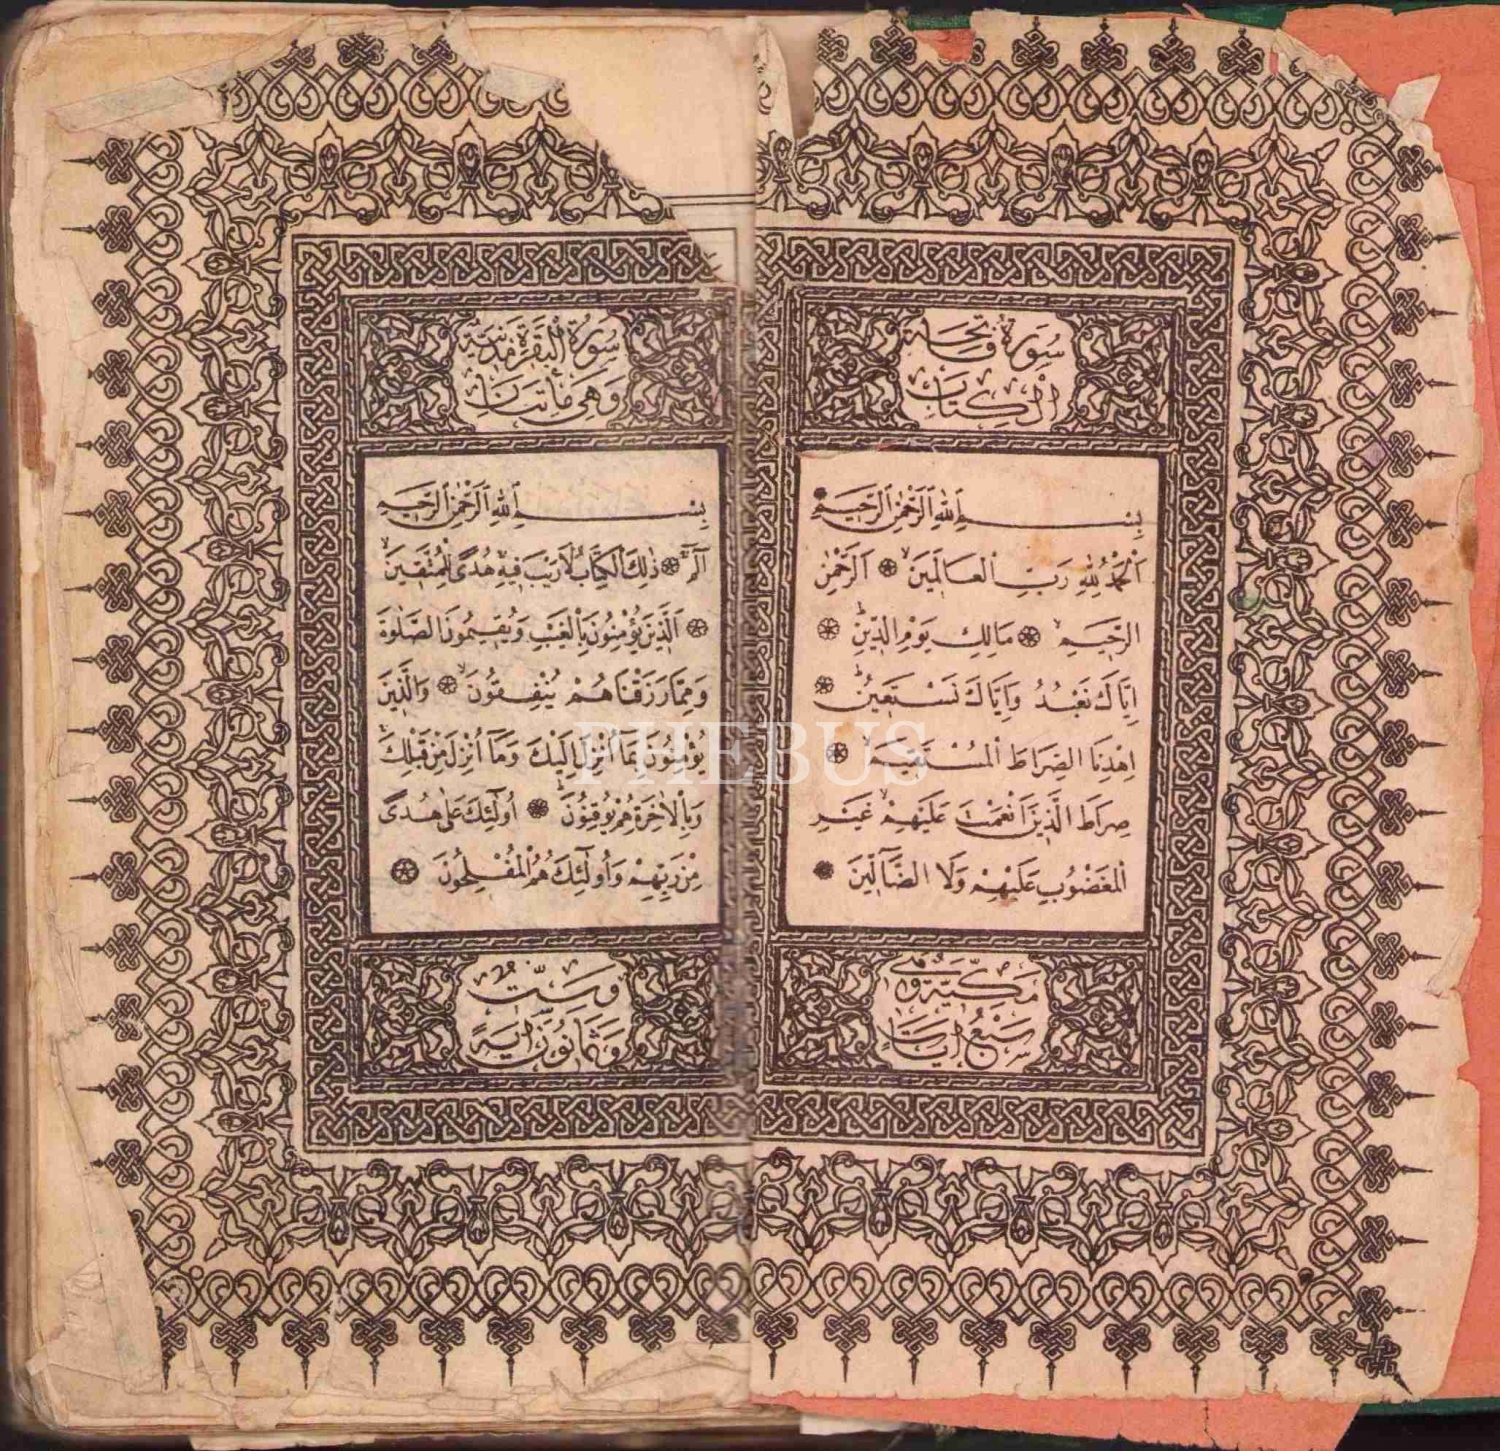 سورة فاتحة
الكتاب
بسم الله الرحمن الرحيم
الحمد لله رب العالمين الرحمن
الرحيم مالك يوم الدين
اياك نعبد واياك نستعين
اهدنا الصراط المستقيم
صراط الذين انعمت عليهم غير
المغضوب عليهم ولا الضالين
مكية وهى
سبع ايات
سورة البقرة مدنية
وهى مأتان
بسم الله الرحمن الرحيم
الم ذلك الكتاب لا ريب فيه هدى للمتقين
الذين يؤمنون بالغيب ويقيمون الصلوة
ومما رزقناهم ينفقون والذين
يؤمنون بما انزل اليك وما انزل من قبلك
وبالاخرة هم يوقنون اولئك على هدى
من ربهم واولئك هم المفلحون
وست
وثمانون اية
PHEBUS